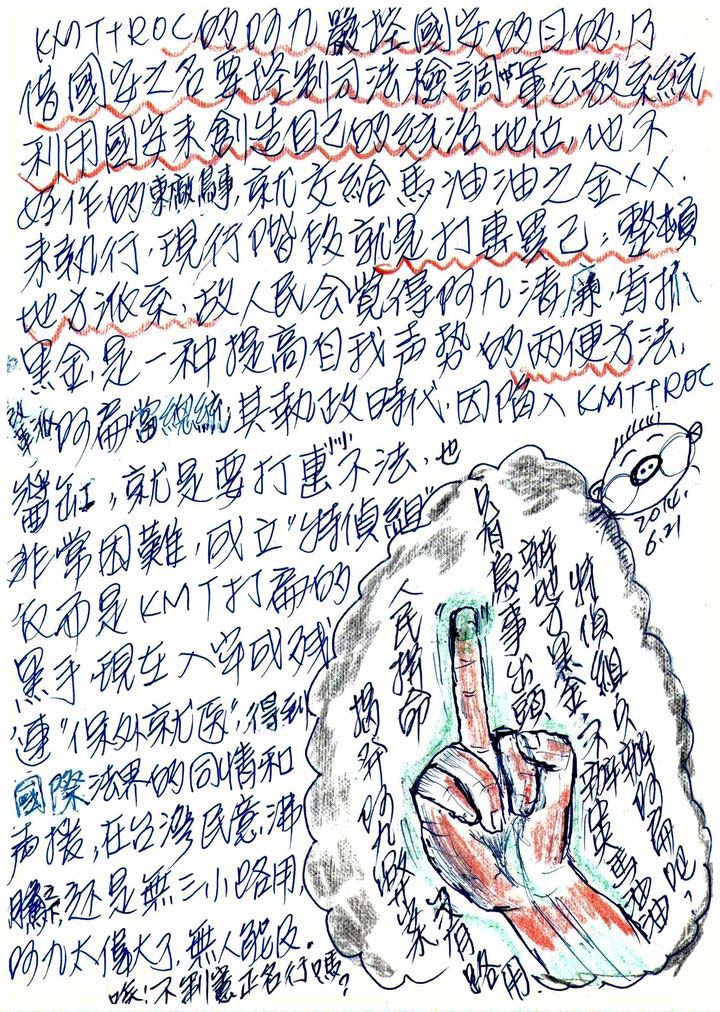 KMT+ROC的阿九嚴控國安的目的,乃
借國安之名要控制司法檢調、軍公教系統
利用國安來創造自己的統治地位,他不
好作的東廠鳥事,就交給馬油油之金××.
來執行,現行階段就是打壓異己;整頓
地方派系,故人民会覺得阿九清廉,肯抓
黑金,是一种提高自我声势的兩便方法,
阿扁當總統,其執政時代,因陷入KMT+ROC
醬缸,就是要打 不法,也
非常困難,成立"特偵組"
反而是KMT打扁的
黑手,現在入牢成残
連"保外就医",得到
國際法界的同情和
声援,在台湾民意沸
騰,还是無三小路用,
阿九太偉大了,無人能及.
唉!不制憲正名行嗎?
2014.
6.21
特偵組只辦阿扁吧?
辦地方黑金不辦 馬油油
只有鳥事出頭
人民拼命
阿九 沒有路用.